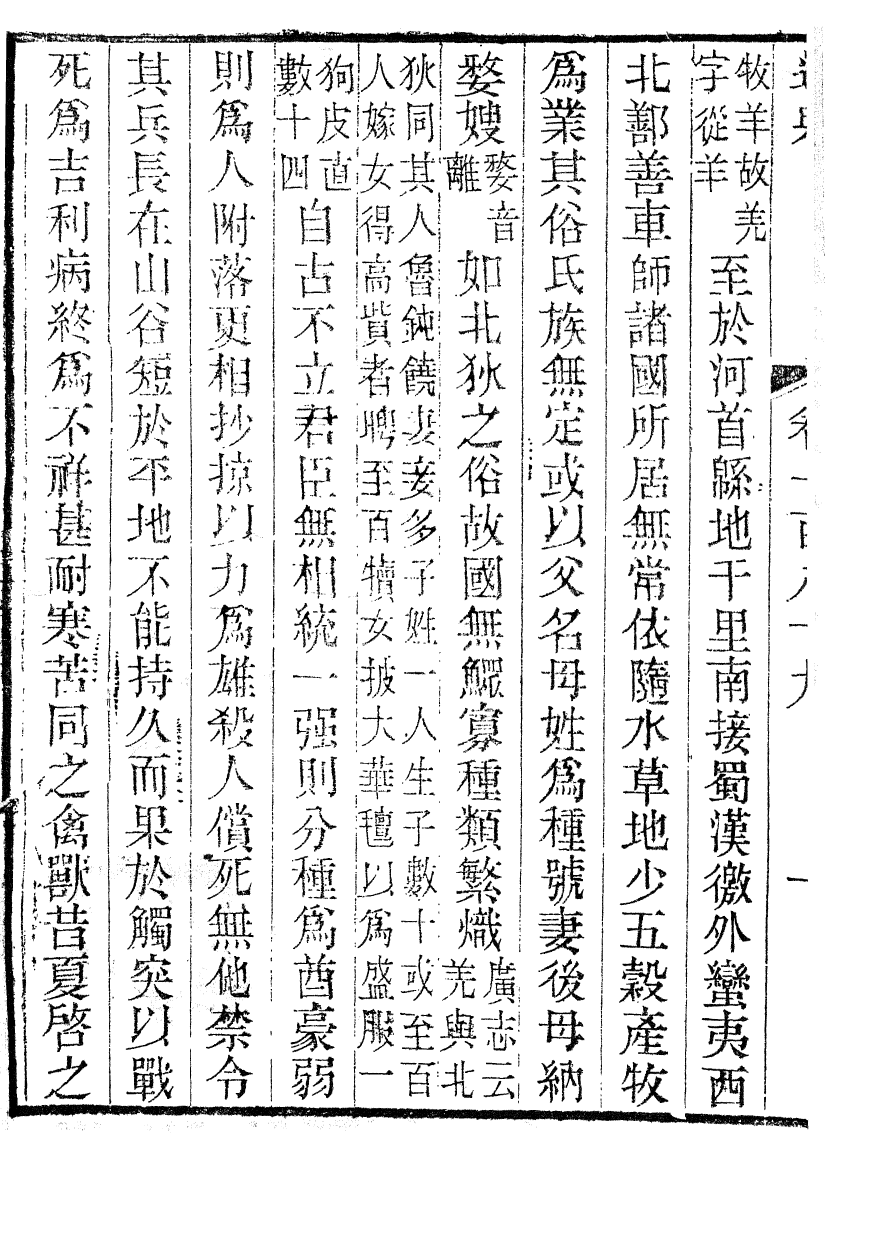 通典 卷一百八十九 一
牧羊故羌
字從羊
至於河首緜地千里南接蜀漢徼外蠻夷西
北鄯善車師諸國所居無常依隨水草地少五穀產牧
爲業其俗氏族無定或以父名母姓爲種號妻後母納
嫠嫂
嫠音
離
如北狄之俗故國無鰥寡種類繁熾
廣志云
羌與北
狄同其人魯鈍饒妻妾多子姓一人生子數十或至百
人嫁女得高貲者聘至百犢女披大華氊以爲盛服一
狗皮直
數十四
自古不立君臣無相統一强則分種爲酋豪弱
則爲人附落更相抄掠以力爲雄殺人償死無他禁令
其兵長在山谷短於平地不能持久而果於觸突以戰
死爲吉利病終爲不祥甚耐寒苦同之禽獸昔夏啓之